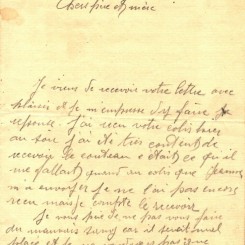 Chers père et mère
Je viens de recevoir votre lettre avec
plaisir et je m'empresse d'y faire
reponse. J'ai reçu votre colis hier
au soir j'ai été très content de
recevoir le couteau c'était ce qu'il
me fallait quand au colis que Jeanne
m'a envoyer je ne l'ai pas encore
reçu mais je compte le recevoir
Je vous prie de ne pas vous faire
du mauvais sang car il
place et je ne